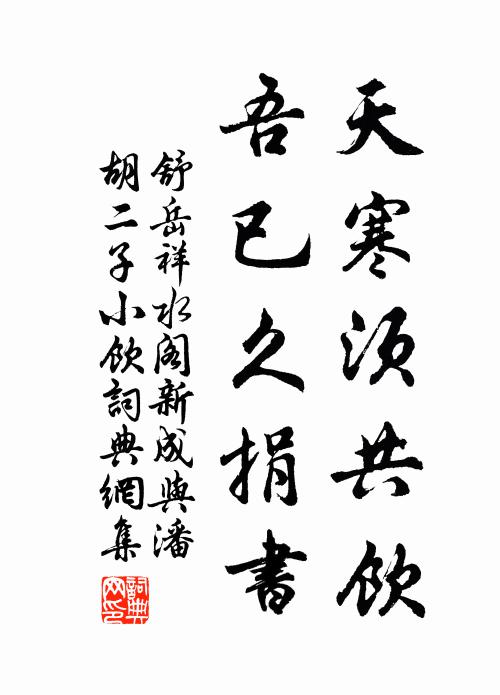 天寒須共飲
吾已久捐書
舒岳祥水閣新成與潘
胡二子小飲詞典網集
詞典網印